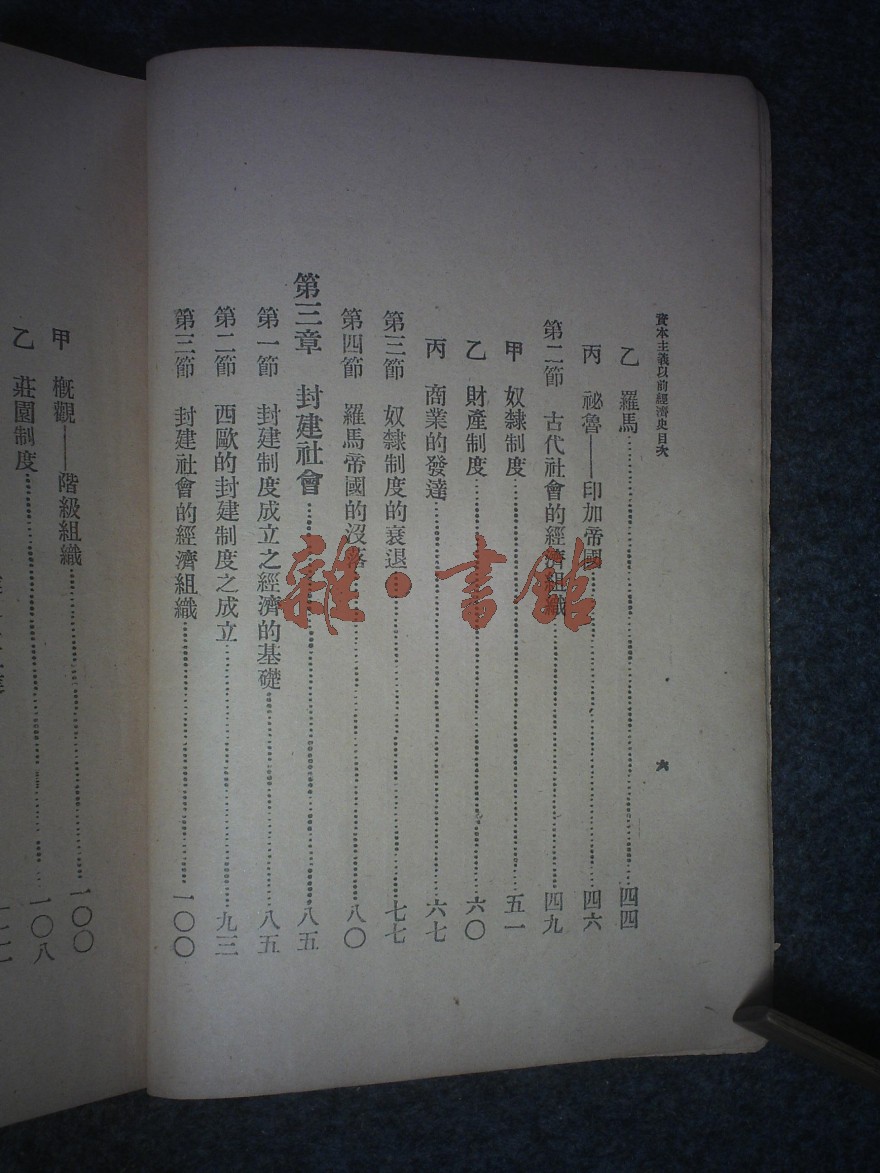 資本主義以前經濟史目次
六
乙 羅馬……四四
丙 祕魯——印加帝國……四六
第二節 古代社會的經濟組織……四九
甲 奴隸制度……五一
乙 財產制度……六〇
丙 商業的發達……六七
第三節 奴隸制度的衰退……七七
第四節 羅馬帝國的沒落……八〇
第三章 封建社會……八五
第一節 封建制度成立之經濟的基礎……八五
第二節 西歐的封建制度之成立……九三
第三節 封建社會的經濟組織……一〇〇
甲 概觀——階級組織……一〇〇
乙 莊園制度……一〇八
雜·書館